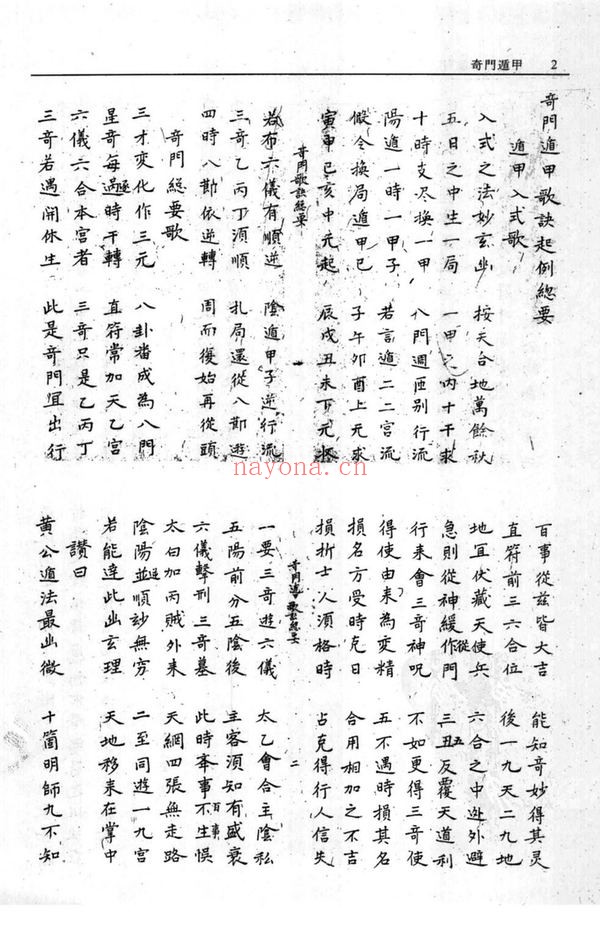 奇門遁甲 2
奇門遁甲歌訣起例總要
遁甲入式歌
入式之法妙玄幽 按天合地萬餘秋
五日之中生一局 一甲之内十干求
十時支尽換一甲 八門週匝别行流
陽遁一時一甲子 若言遁二二宮流
假令換局遁甲己 子午卯酉上元求
寅申己亥中元起 辰戌丑未下元
奇門歌訣總要 一
若布六儀有順逆 陰遁甲子逆行流
三奇乙丙丁須順 扎局還從八節遊
四時八節依逆轉 周而復始再從頭
奇門總要歌
三才變化作三元 八卦畨成為八門
星奇每遇時干轉 直符常加天乙宮
六儀六合本宮者 三奇只是乙丙丁
三奇若遇開休生 此是奇門宜出行
百事從兹皆大吉 能知奇妙得其灵
直符前三六合位 後一九天二九地
地宜伏藏天使兵 六合之中迯外避
急則從神緩從作門 三五丑反覆天道利
行来會三奇神呪 不如更得三奇使
得使由来為変精 五不遇時損其名
損名方受時克日 合用相加之不吉
損折士人須格時 占克得行人信失
奇門遁 歌訣總要 二
一要三奇遊六儀 太乙會合主陰私
五陽前分五陰後 主客須知有盛衰
六儀擊刑三奇墓 此時奉事百事不生悮
太白加丙賊外来 天網四張無走路
陰陽並順逆妙無穷 二至同遊一九宮
若能達此出玄理 天地移来在掌中
讚曰
黄公遁法最幽微 十箇明師九不知
nayona.cn